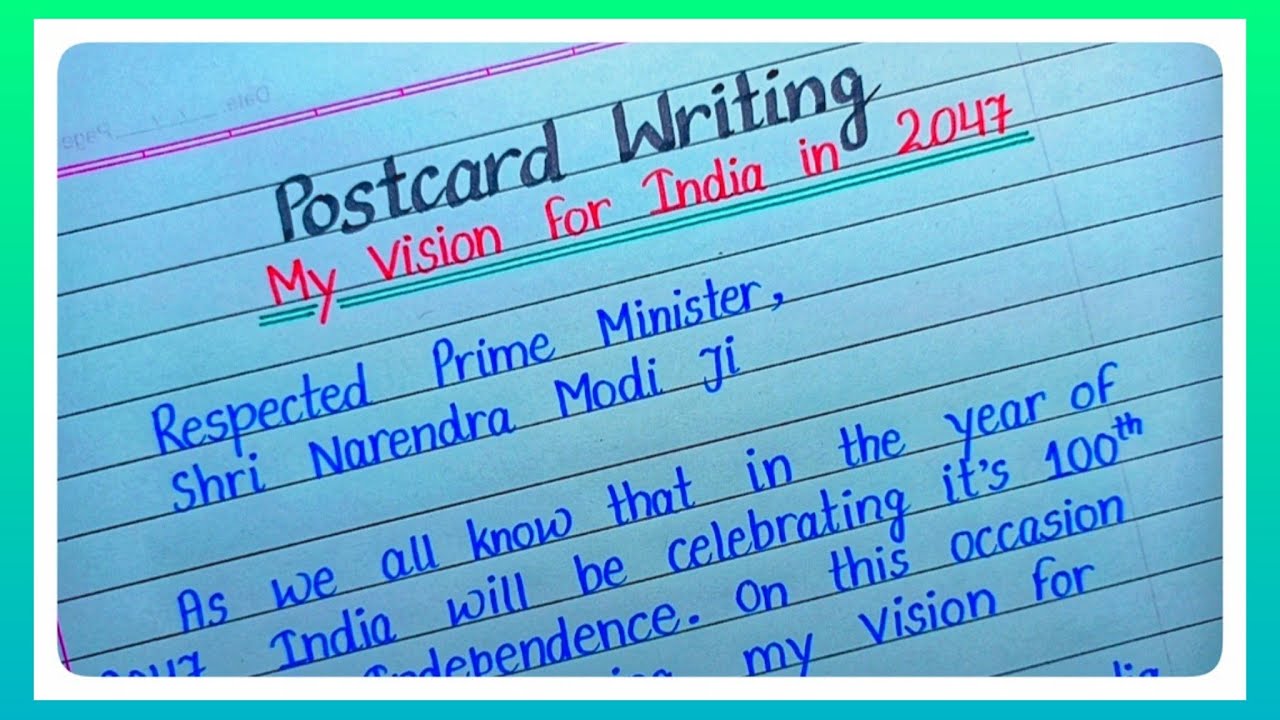 Date. Page
Postcard Writing
My Vision for India in 2047
Respected Prime Minister,
Shri Narendra Modi Ji
As we all know that in the year of
2047 India will be celebrating it's 100th
Independence. On this occasion
my vision for